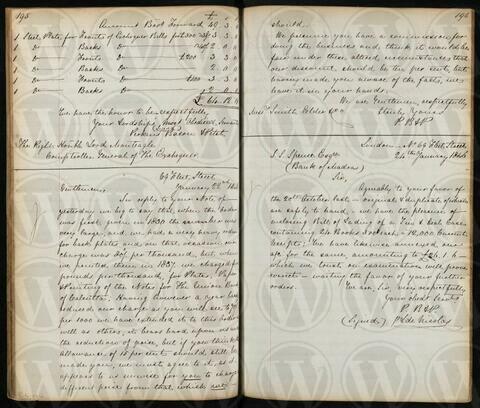 195
Amount Brot Forward
1 Steel Plate for Fronts of Exchequer Bills
1 Do Backs Do
1 Do Fronts Do £200 3 3 0
1 Do Backs Do 2 0 0
1 Do Fronts Do £100 3 3 0
1 Do Backs Do 2 0 0
We have the honor to be respectfully
Your Lordships Most Obedient Servants
Perkins Bacon & Petch
The Right Honble Lord Monteagle
Comptroller General of the Exchequer
69 Fleet Street
January 22nd
Gentlemen,
In reply to your Note of
yesterday we beg to say that, when the order
was first given in 1830 the number was
very large, and we had a very heavy order
for back plates and on that occasion our
charge was 30/- per thousand, but when
we printed them in 1837 we charged
pounds per thousand, for Plates, Paper
& Printing of the Notes for the Union Bank
of Calcutta. Having however a year
reduced our charge as you will see
per 1000 we have extended it to this order
well as others, it bears hard upon us
the reduction of price, but if you think the
allowance of 15 per cent should still be
made you, we must agree to it, as it
appears to us unwise for you to charge
different price from that which
196
should.
We presume you have a commission for
doing the business and think it would be
fair under these altered circumstances that
our discount should be ten per cent, but
having made you aware of the facts, we
leave it in your hands.
We are Gentlemen, respectfully
Messrs Smith Elder & Co Truly Yours
P. B & P
London, No 69 Fleet Street
24th January
S. S. Spence Esqre
(Bank of Madras)
Sir,
Agreeably to your favor of
the 20th October last - original & duplicate of which
are safely to hand, we have the pleasure of
enclosing Bill of Lading of
containing 24 Books
Receipts; We have likewise annexed
for the same, amounting to £
which we trust on examination will prove
correct - waiting the favor of your further
orders.
We are, Sir, very respectfully
Your obedt Servts
P. B & P
(Signed)